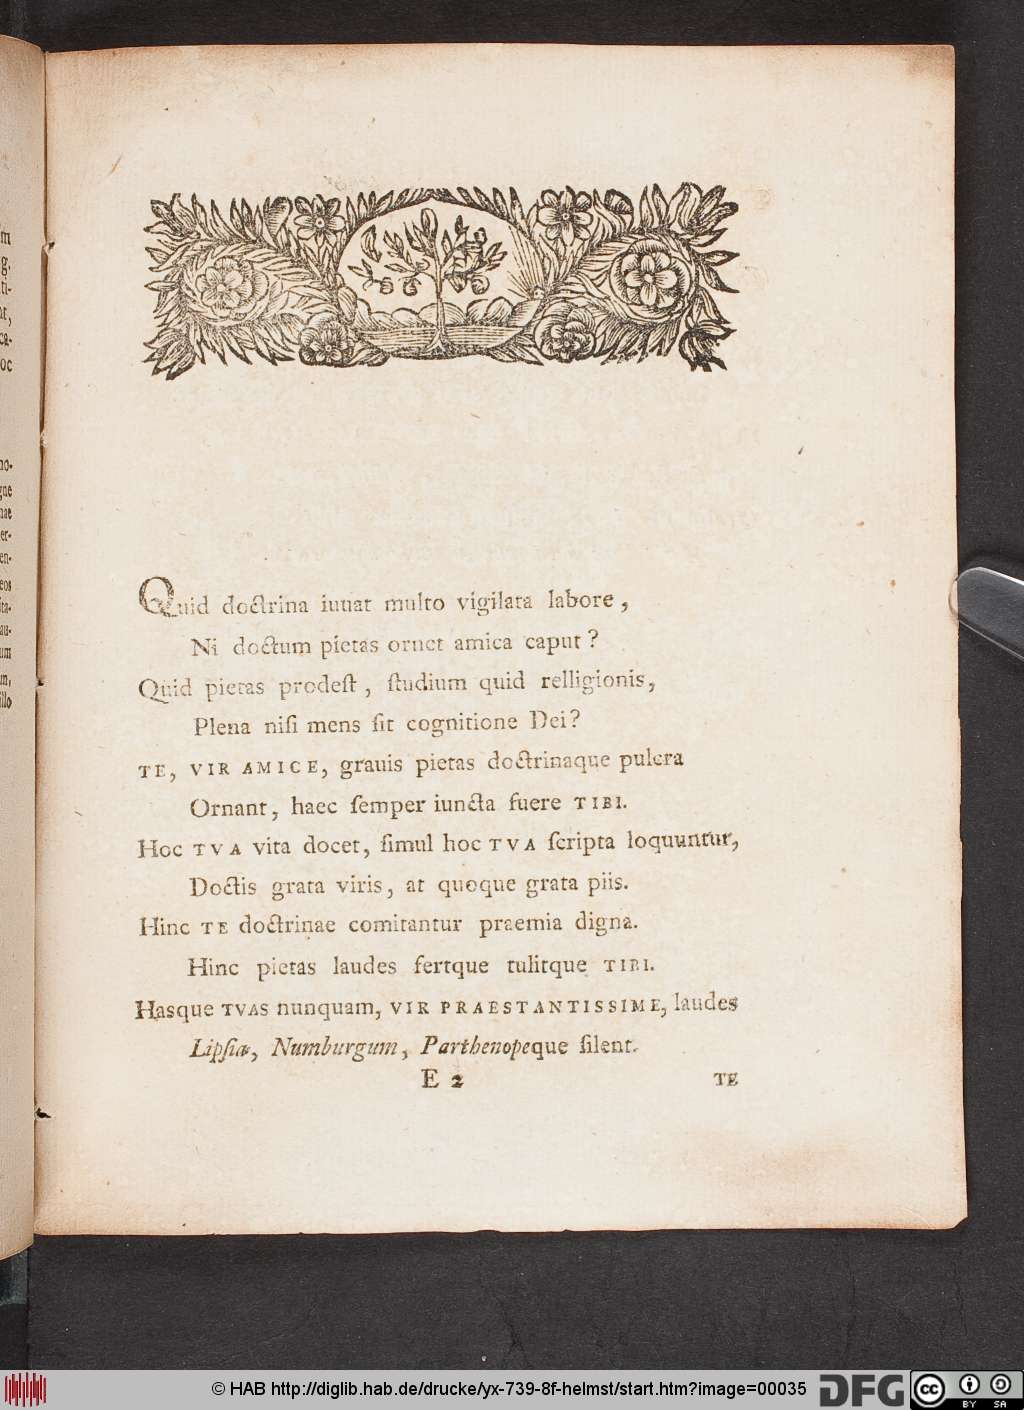 Quid doctrina iuuat multo vigilata labore,
Ni doctum pietas ornet amica caput?
Quid pietas prodest, studium quid relligionis,
Plena nisi mens sit cognitione Dei?
TE, VIR AMICE, grauis pietas doctrinaque pulcra
Ornant, haec semper iuncta fuere TIBI.
Hoc TVA vita docet, simul hoc TVA scripta loquuntur,
Doctis grata viris, at quoque grata piis.
Hinc TE doctrinae comitantur praemia digna.
Hinc pietas laudes fertque tulitque TIBI.
Hasque TVAS nunquam, VIR PRAESTANTISSIME, laudes
Lipsia, Numburgum, Parthenopeque silent.
E 2 TE
© HAB http://diglib.hab.de/drucke/yx-739-8f-helmst/start.htm?image=00035
DFG
cc BY SA